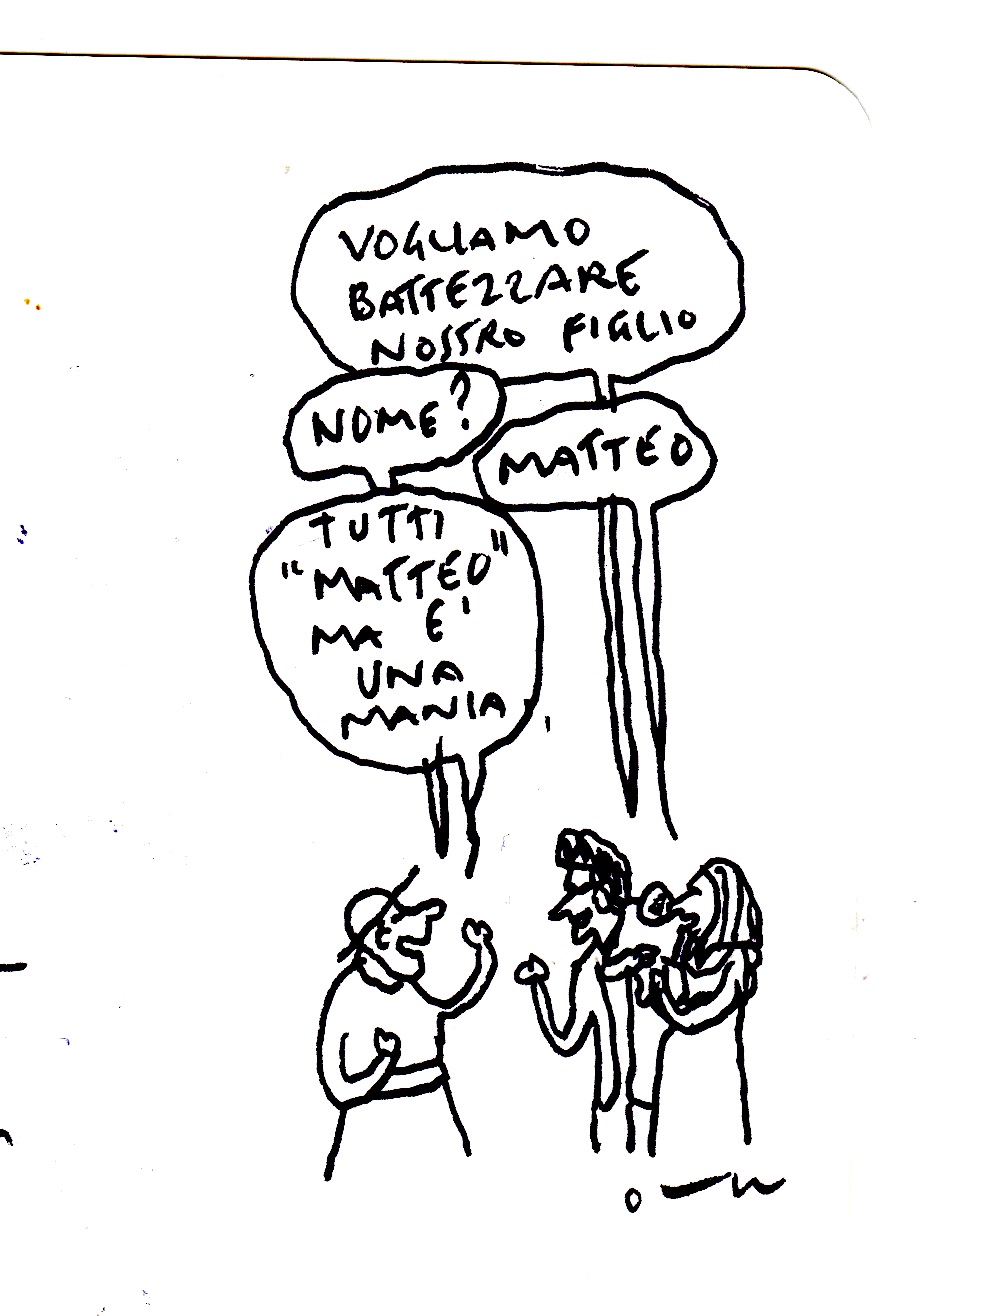 VOGLIAMO
BATTEZZARE
NOSTRO FIGLIO
NOME?
MATTEO
TUTTI
"MATTEO"
MA E'
UNA
MANIA